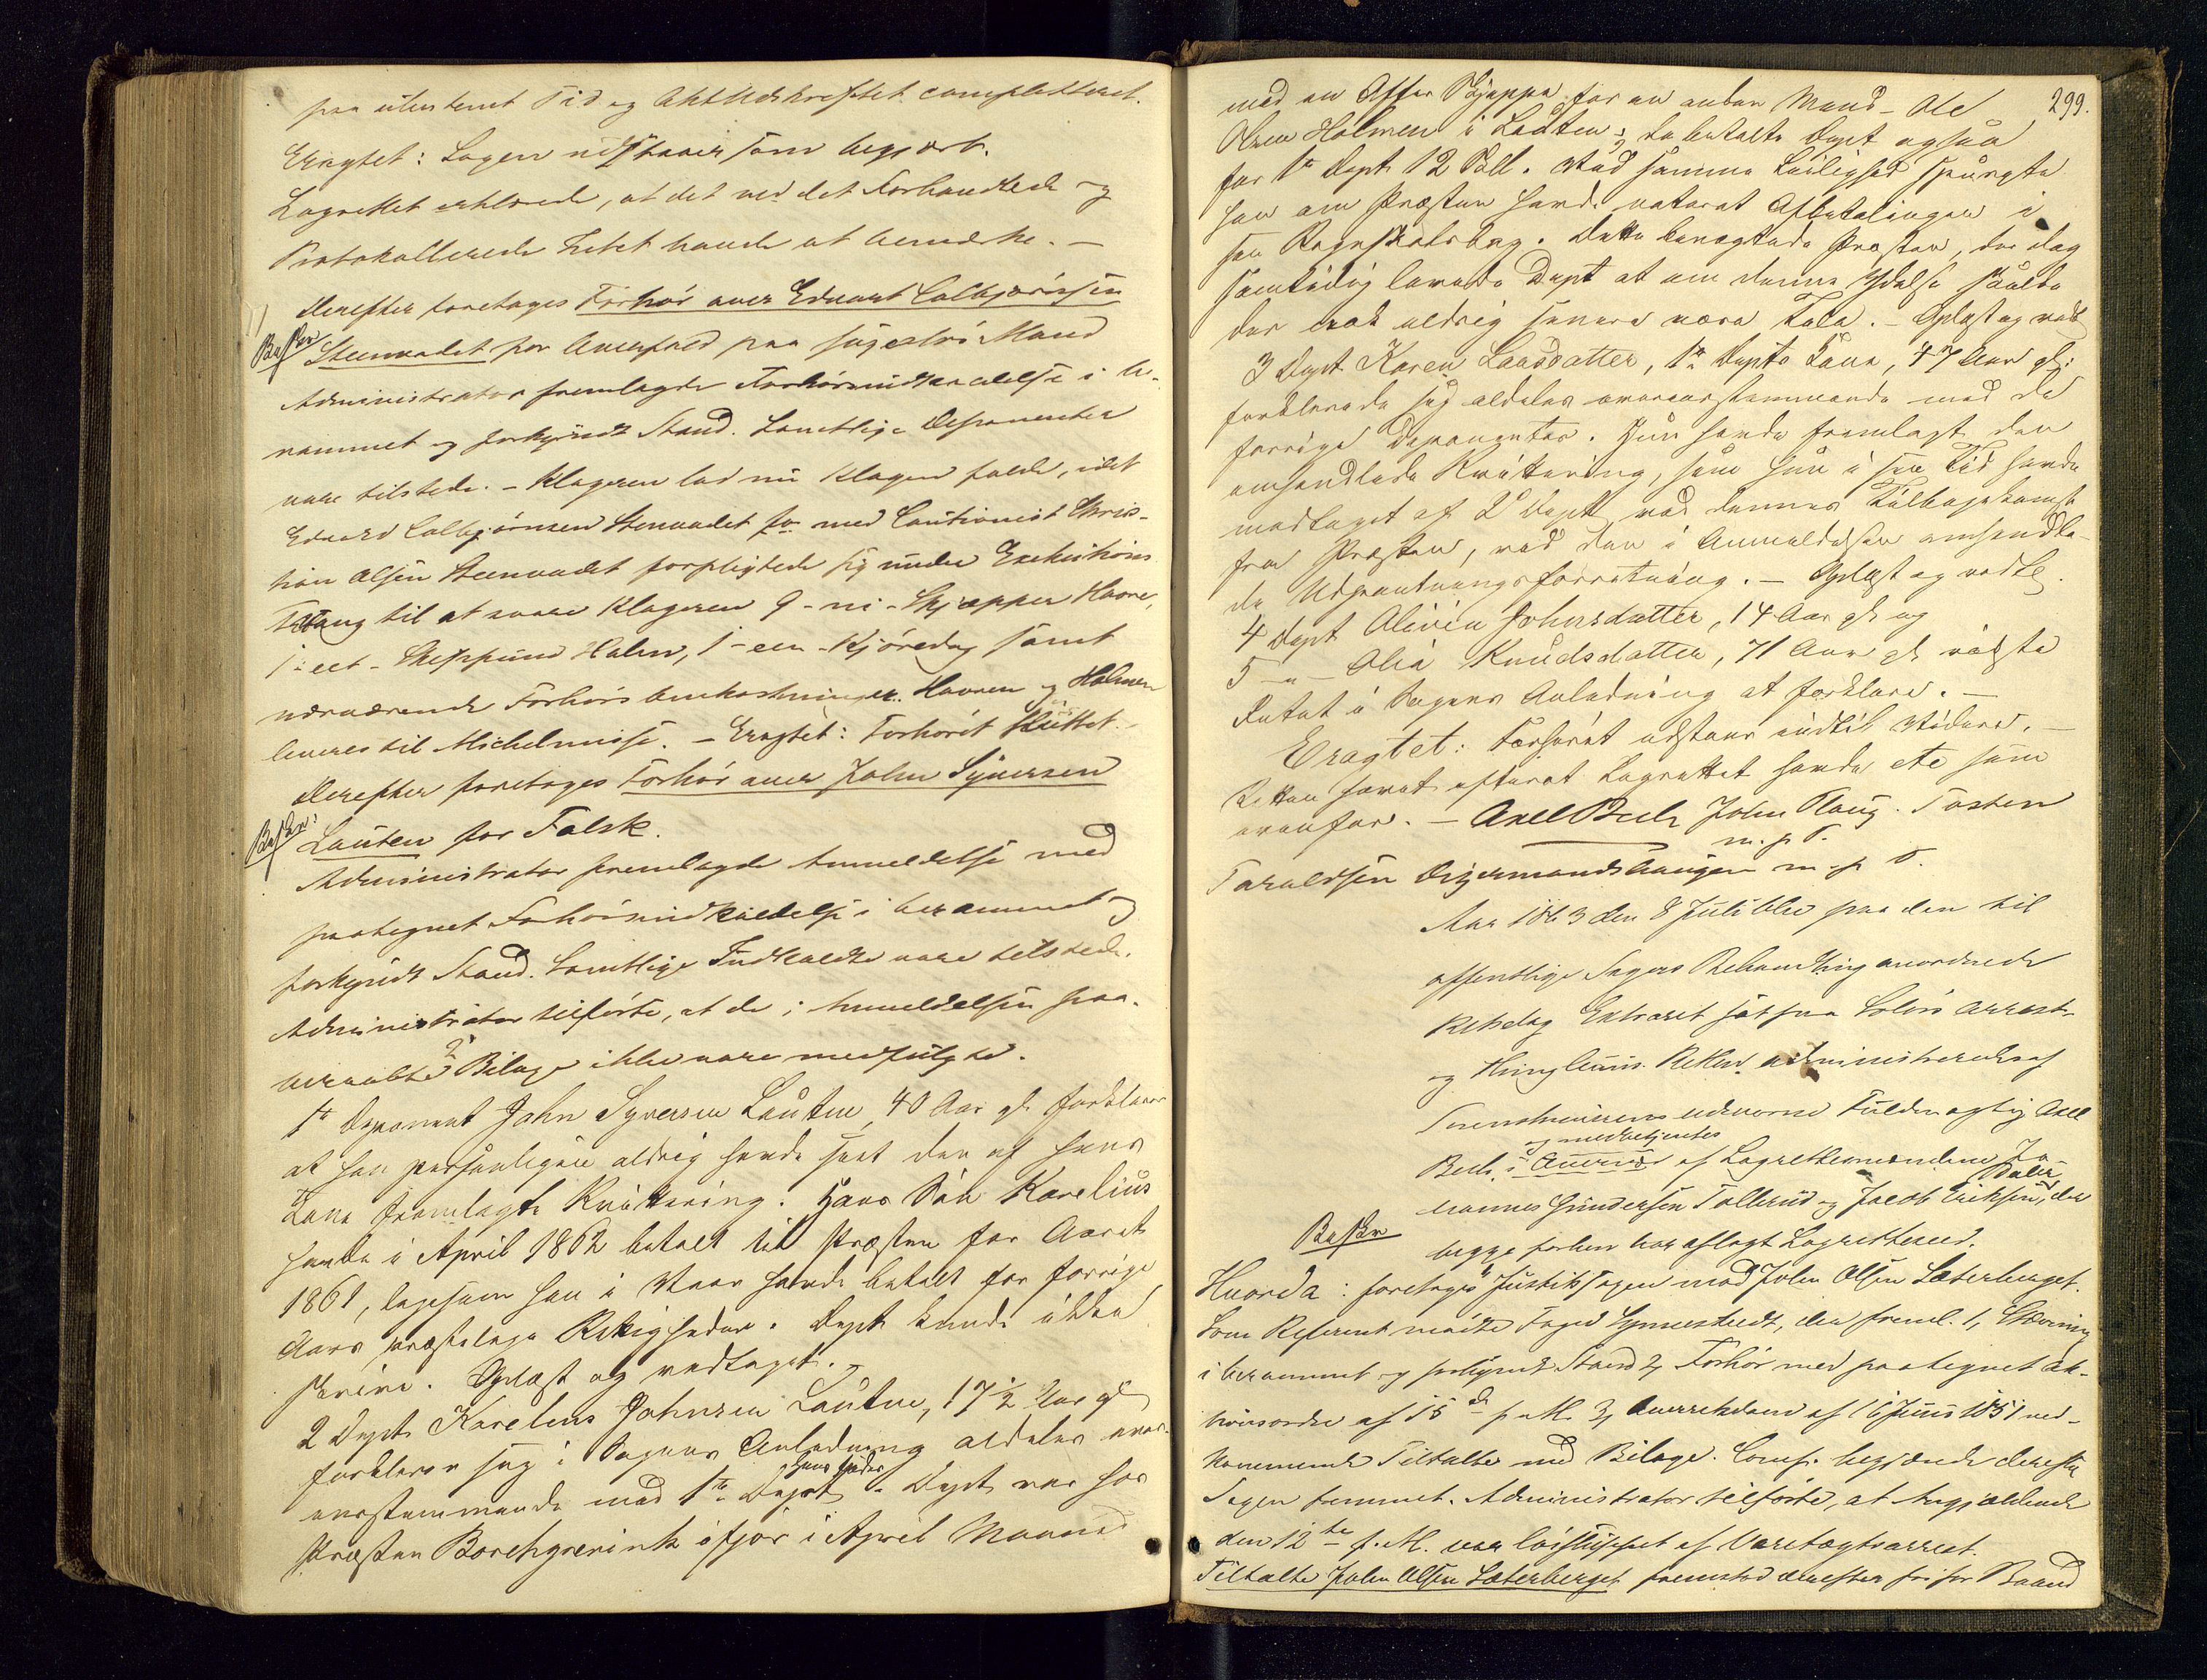 paa utestemt Tid og Aktudskriftet completteret.
Eragtet: Sagen udstaaer som begjært.
Lagrettet erklærede, at det ved det Forhandlede og
Protokollerede Intet havde at bemærke. —
Derefter foretages Forhør over Edvart Colbjørnsen
Besk
Steenvadet for Overfald paa sageløs Mand
Administrator fremlagde Forhørsindkaldelse i be-
rammet og forkyndt Stand. Samtlige Deponenter
vare tilstede. – Klageren lod nu Klagen falde, idet
Edvard Colbjørnsen Steenvadet med Cautionist Chris-
tian Olsen Steenvadet forpligtede sig under Exekutions
Tvang til at svare Klageren 9 – ni – Skjæpper Havre,
1 – eet – Skippund Halm, 1 – een – Kjøredag samt
nærværende Forhørs Omkostninger. Havren og Halmen
leveres til Michelmisse. – Eragtet: Forhøret sluttet.
Derefter foretages Forhør over John Syversen
Besk
Lauten for Falsk.
Administrator fremlagde Anmeldelse med
paategnet Forhørsindkaldelse i berammet og
forkyndt Stand. Samtlige Indkaldte vare tilstede.
Administrator tilførte, at de i Anmeldelsen paa-
beraabte 2 Bilage ikke vare medfulgte.
1ste Deponent John Syversen Lauten, 40 Aar gl. forklarer
at han personligen aldrig havde seet den af hans
Kone fremlagte Kvittering. Hans Søn Karelius
havde i April 1862 betalt til Præsten for Aaret
1861, ligesom han i Vaar havde betalt for forrige
Aars præstelige Rettigheder. Dept kunde ikke
skrive. Oplæst og vedtaget. –
2 Dept Karelius Johnsen Lauten, 17½ Aar gl
forklarer sig i Sagens Anledning aldeles over-
ensstemmende med 1ste Dept hans Fader. Dept var hos
Præsten Borchgrevink ifjor i April Maaned
299.
med en Otter Skjeppe for en anden Mand – Ole
Olsen Holmen i Lauten; da betalte Dept ogsaa
for 1ste Dept 12 Skill. Ved samme Leilighed spurgte
han om Præsten havde noteret Afbetalingen i
sin Regnskabsbog. Dette benegtede Præsten, der dog
samtidig lovede Dept at om denne Ydelse skulde
der aldrig senere være Tale. – Oplæst og vedt
3 Dept Karen Larsdatter, 1ste Depts Kone, 47 Aar gl:
forklarede sig aldeles overeensstemmende med de
forrige Deponenter. Hun havde fremlagt den
omhandlede Kvittering, som hun i sin Tid havde
modtaget af 2det Dept ved dennes Tilbagekomst
fra Præsten, ved den i Anmeldelsen omhandle-
de Udpantningsforretning. – Oplæst og vedt.
4 Dept Olivia Johnsdatter, 14 Aar gl og
5 – " – Olia Knudsdatter, 71 Aar gl vidste
Intet i Sagens Anledning at forklare. –
Eragtet: Forhøret udstaaer indtil Videre. –
Retten hævet efterat Lagrettet havde etc som
ovenfor. – Axel Bech John Haug. Tosten
m. p. P.
Taraldsen Digermandshaugen m. p. P.
Aar 1863 den 8 Juli blev paa den til
offentlige Sagers Behandling anordnede
Retsdag Extraret sat paa Solørs Arrest-
og Thinglocale. Retten administreredes af
Sorenskriverens edsvorne Fuldmægtig Axel
Bech, og medbetjentes af Lagrettesmændene Jo-
hannes Gundersen Tollerud og Jacob Eriksen, der
Besk
begge forhen har aflagt Lagretteseed.
Hvorda: foretages Justitssagen mod John Olsen Sæterberget.
Som Referent mødte Foged Synnestvedt, der freml. 1, Stævning
i berammet og forkyndt Stand 2, Forhør med paategnet Ak-
tionsordre af 15de f. M. 3, Overretsdom af 16 Juni 1851 ved-
kommende Tiltalte med Bilage. Comp. begjærede derefter
Sagen fremmet. Administrator tilførte, at Angjældende
den 12te f. M. var løsladt af Varetægtsarrest.
Tiltalte John Olsen Sæterberget fremstod derefter fri for Baand